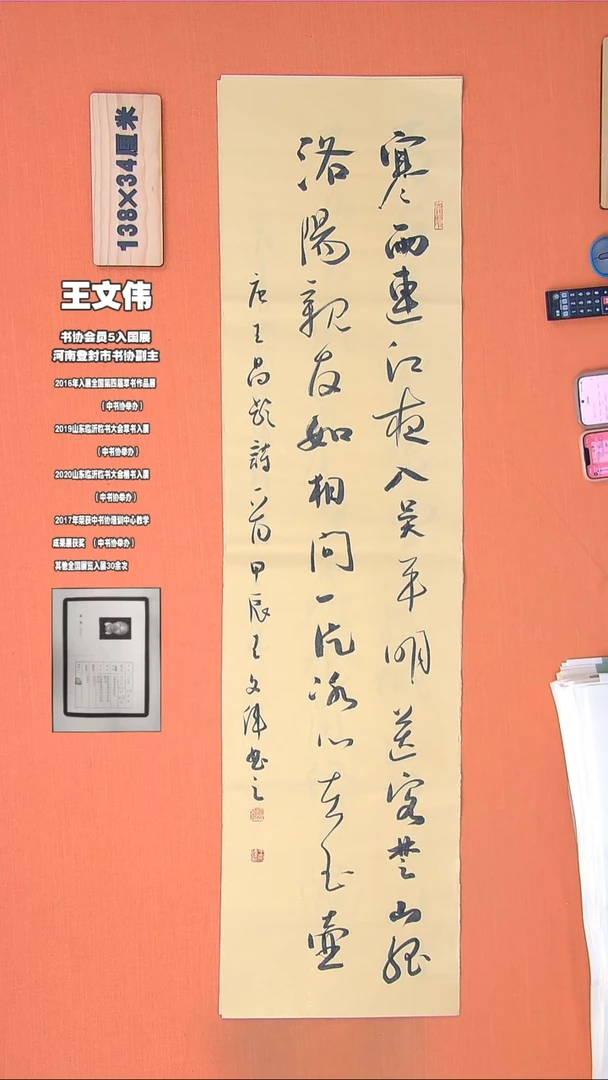 寒雨連江夜入吳平明送客楚山孤
洛陽親友如相問一片冰心在玉壺
唐王昌齡詩一首甲辰王文偉書之
138×34厘米
王文伟
书协会员5入国展
河南登封市书协副主
2016年入展全国第四届草书作品展
（中书协举办）
2019山东临沂临书大会草书入展
（中书协举办）
2020山东临沂临书大会楷书入展
（中书协举办）
2017年荣获中书协培训中心教学
成果展获奖 （中书协举办）
其他全国展览入展30余次